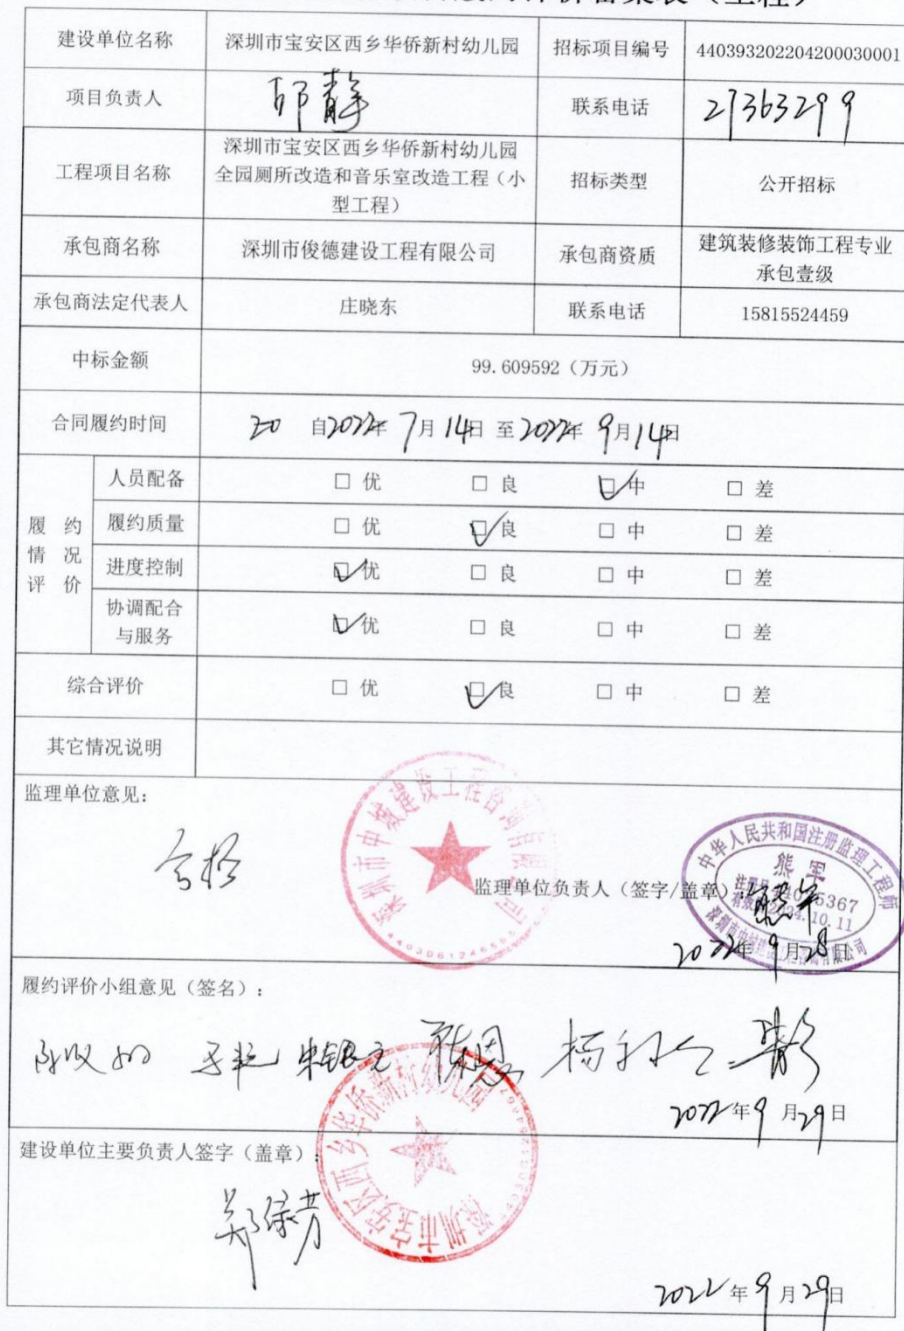 建设单位名称 深圳市宝安区西乡华侨新村幼儿园 招标项目编号 440393202204200030001
项目负责人 联系电话 27363299
工程项目名称 深圳市宝安区西乡华侨新村幼儿园 招标类型 公开招标
全园厕所改造和音乐室改造工程（小
型工程）
承包商名称 深圳市俊德建设工程有限公司 承包商资质 建筑装修装饰工程专业
承包壹级
承包商法定代表人 庄晓东 联系电话 15815524459
中标金额 99.609592（万元）
合同履约时间 自2022年 7月 14日 至 2022年 9月 14日
履约情况评价
人员配备 □ 优 □ 良 ☑ 中 □ 差
履约质量 □ 优 ☑ 良 □ 中 □ 差
进度控制 ☑ 优 □ 良 □ 中 □ 差
协调配合
与服务 ☑ 优 □ 良 □ 中 □ 差
综合评价 □ 优 ☑ 良 □ 中 □ 差
其它情况说明
监理单位意见：
合格
深圳市中城建设工程咨询有限公司
中华人民共和国注册监理工程师
熊军
2024.10.11
监理单位负责人（签字/盖章）：
2022年 9月 28日
履约评价小组意见（签名）：
2022年 9月 29日
建设单位主要负责人签字（盖章）：
深圳市宝安区西乡华侨新村幼儿园
2022年 9月 29日